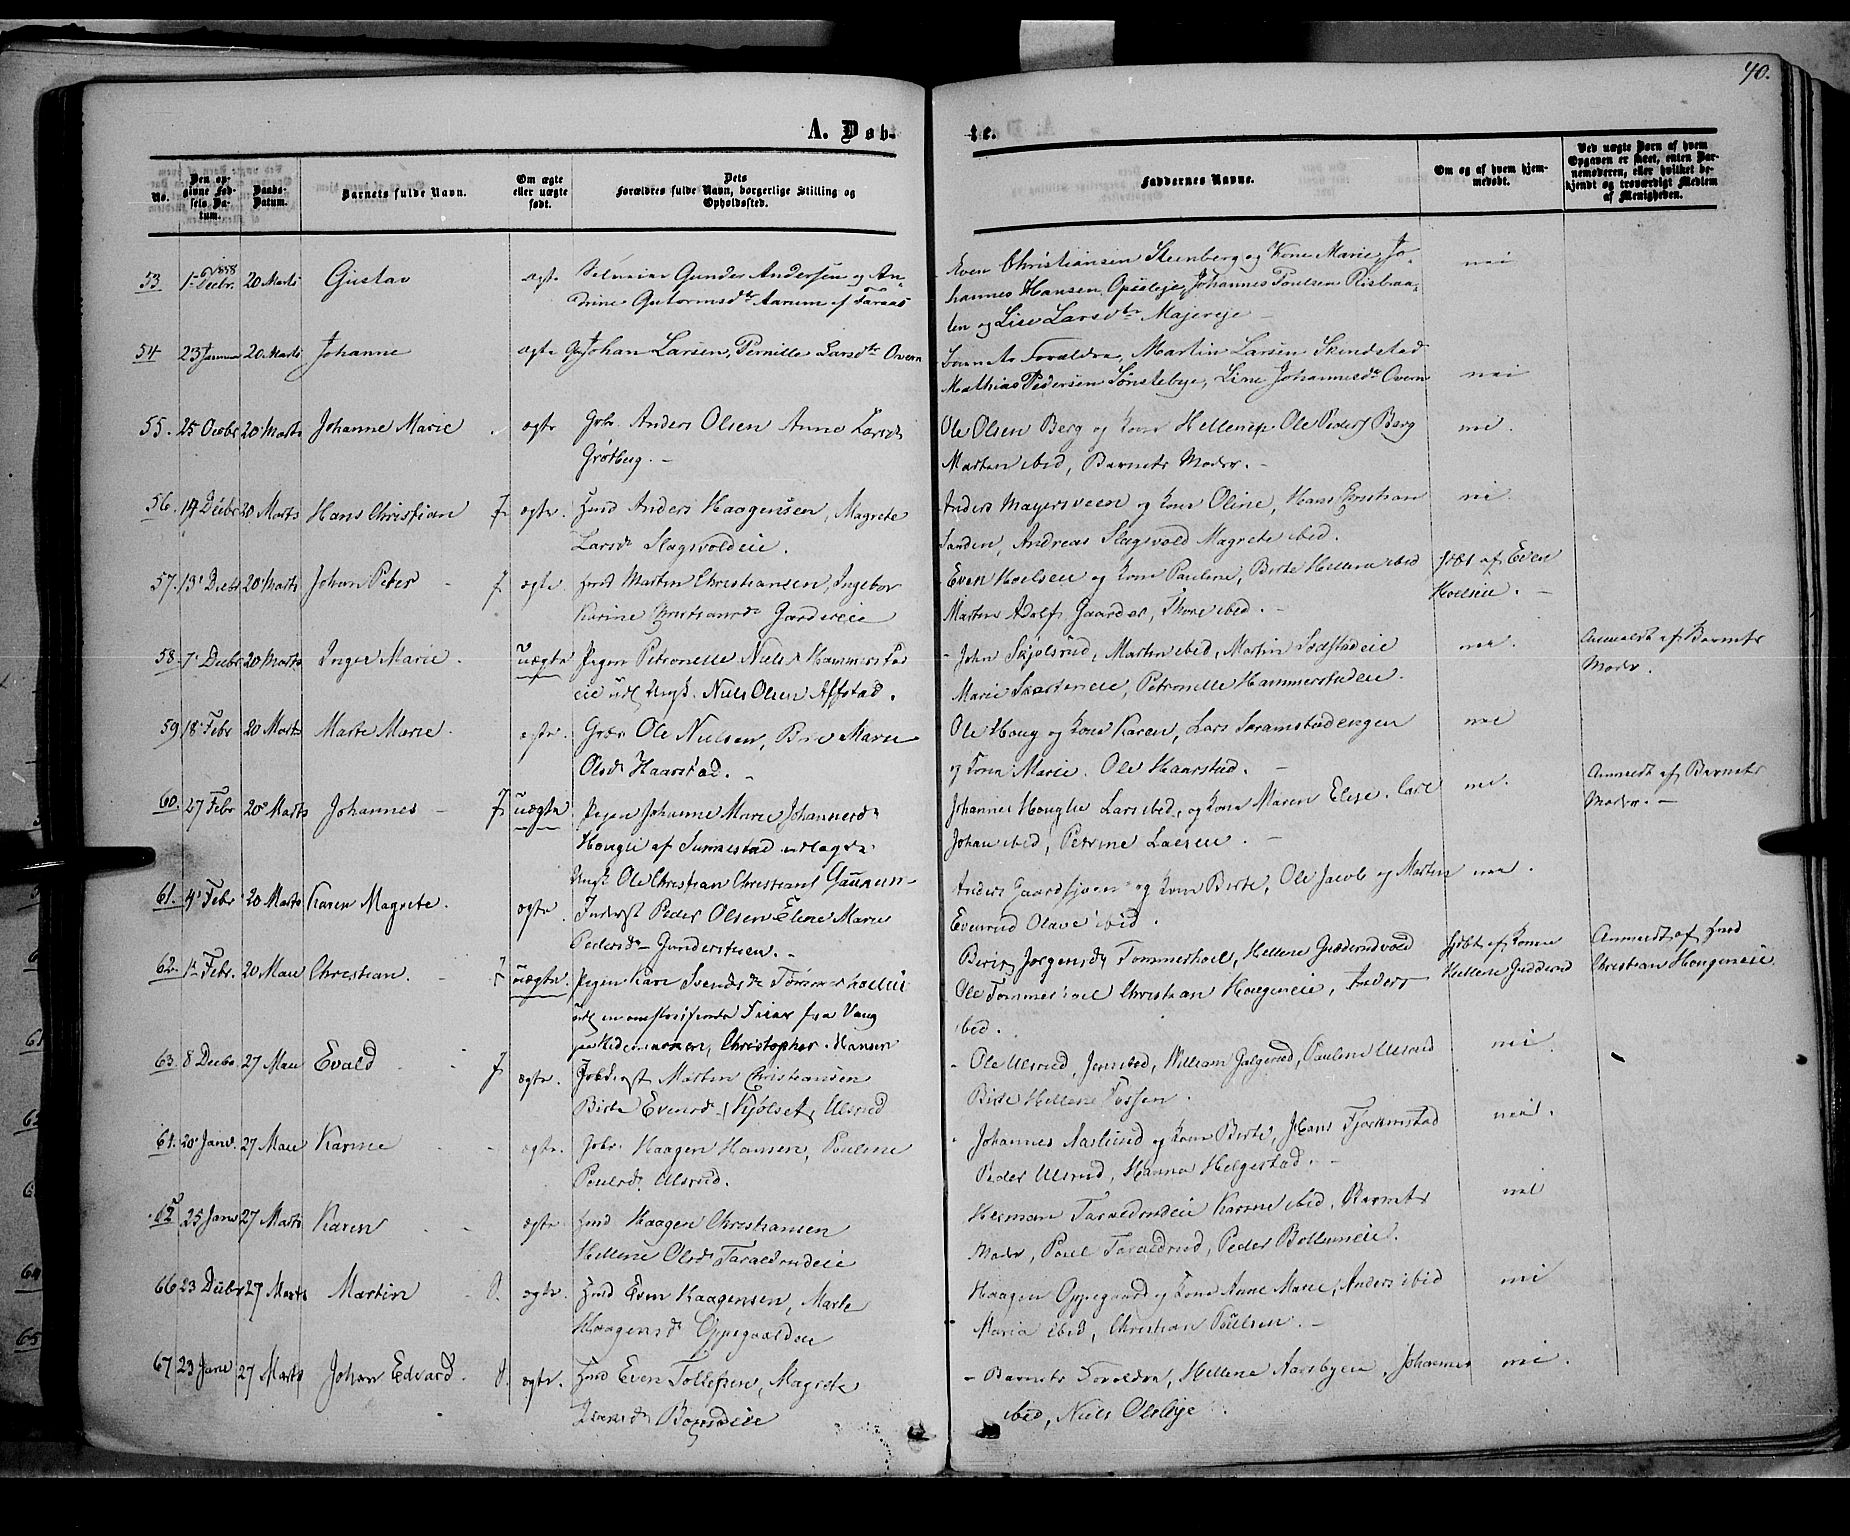 40.
A. Døb-
te.
No.
Den op-
givne Fød-
sels Da-
tum.
Daabs-
Datum.
Barnets fulde Navn.
Om ægte
eller uægte
født.
Dets
Forældres fulde Navn, borgerlige Stilling og
Opholdssted.
Faddernes Navne.
Om og af hvem hjem-
medøbt.
Ved uægte Børn af hvem
Opgaven er skeet, enten Bar-
nemoderen, eller hvilket be-
kjendt og troværdigt Medlem
af Menigheden.
53 1 Decbr. 1858 20 Marts Gustav ægte Gunder Andersen og An-
drine Gutormsdtr Aarum af Faraas
Even Christiansen Steenberg og Kone Marie, Jo-
hannes Hansen Opsleje, Johannes Poulsen Risbraa-
ten og Lise Larsdtr Majereje - nei
54 23 Januar 20 Marts Johanne ægte Johan Larsen, Pernille Larsdtr Overn
Barnets Forældre, Martin Larsen Skindstad
Mathias Pedersen Sønsteby, Line Johannesdtr Overn nei
55. 25 Octbr 20 Marts Johanne Marie ægte Gbr. Anders Olsen Anne Larsdr
Grøtberg. -
Ole Olsen Berg og Kone Hellene, Ole Peders Berg nei.
Marten ibid, Barnets Moder. -
56. 14 Decbr 20 Marts Hans Christian J. ægte. Husd Anders Haagensen, Magrete
Larsdr Slagsvoldeie.
Anders Mayersveen og Kone Oline, Hans Christian nei.
Sanden, Andreas Slagsvold Magrete ibid.
57. 13 Decbr 20 Marts Johan Peter - J. ægte. Husd Martin Christiansen, Ingebor
Karine Christiansdr Gardereie
Even Hoelseie og Kone Pauline, Birte Hellene ibid
Marten Adolf Gaarder, Thore ibid. -
Døbt af Even
Hoelseie. -
58. 7 Decbr 20 Marts Inger Marie. uægte Pigen Petronelle Nielsd Hammerstad
eie udl Ungk. Niels Olsen Affstad.
- John Skjølsrud, Martin ibid, Martin Sødstadeie
Marie Skartereie, Petronelle Hammerstadeie. nei.
Anmeldt af Barnets
Moder.
59 18 Febr 20 Marts Marte Marie. ægte. Gbr Ole Nielsen, Marie
Olsdr Haarstad. -
Ole Houg og Kone Karen, Lars Skramstadengen
og Kone Marie. Ole Haarstad. - nei
60. 27 Febr 20 Marts Johannes - J. uægte. Pigen Johanne Marie Johannesdr
Hougeie af Sunnestad udlagde
Ungk Ole Christian Christians
Johannes Hougeie Lars ibid, og Kone Maren Elise. Carl
Johan ibid, Petrine Larsen. - nei.
Anmeldt af Barnets
Moder. -
61. 4 Febr 20 Marts Karen Magrete. ægte. Inderst Peder Olsen Eline Marie
Pedersdr - Gunderstuen. -
Anders Gaardsjøen og Kone Birte, Ole Jacob og Martin
Evenrud Olave ibid. nei.
62. 1 Febr. 20 Mars Christian. - J uægte. Pigen Kari Svendsdr Tømmerhoeleie
udl en omstreifende fra Vang
paa Hedemarken, Christopher Hansen
Jørgensdr Tommerhoel, Hellene Gudderudvold
Ole Tommerhoel Christian Hougeneie, Anders
ibid.
Døbt af Konen
Hellene Gudderud
Anmeldt af Husd
Christian Hougeneie.
63. 8 Decbr 27 Mars Evald - J. ægte. Martin Christiansen
Birte Evensdr Kjølset, Ulsrud
- Ole Ulsrud, William Julgerud, Pauline Ulsrud
Birte Hellene Fossen. nei.
64. 20 Janv. 27 Mars Karine - ægte. Gbr. Haagen Hansen, Pouline
Poulsdr. Ulsrud.
Johannes Aaslund og Kone Birte, Hans Fjærkenstad
Peder Ulsrud, Hanna Helgestad. - nei.
65 25 Janv 27 Marts Karen ægte Husd Haagen Christiansen
Hellene Olsdr Taraldrudeie
Herman Taraldrudeie Karine ibid, Barnets
Moder, Poul Taraldrud, Peder Bolleneie. nei
66 23 Decbr 27 Marts Martin - ægte. Husd Even Haagensen, Marte
Haagensdr Oppegaardeie
Haagen Oppegaard og Kone Anne Marie, Anders ibid
Maria ibid, Christian Poulsen. - nei
67 23 Janv 27 Marts Johan Edvard. ægte. Husd Even Tollefsen, Magrete
- Barnets Forældre, Hellene Aarsbyen, Johannes
ibid, Niels Olsbye. nei.